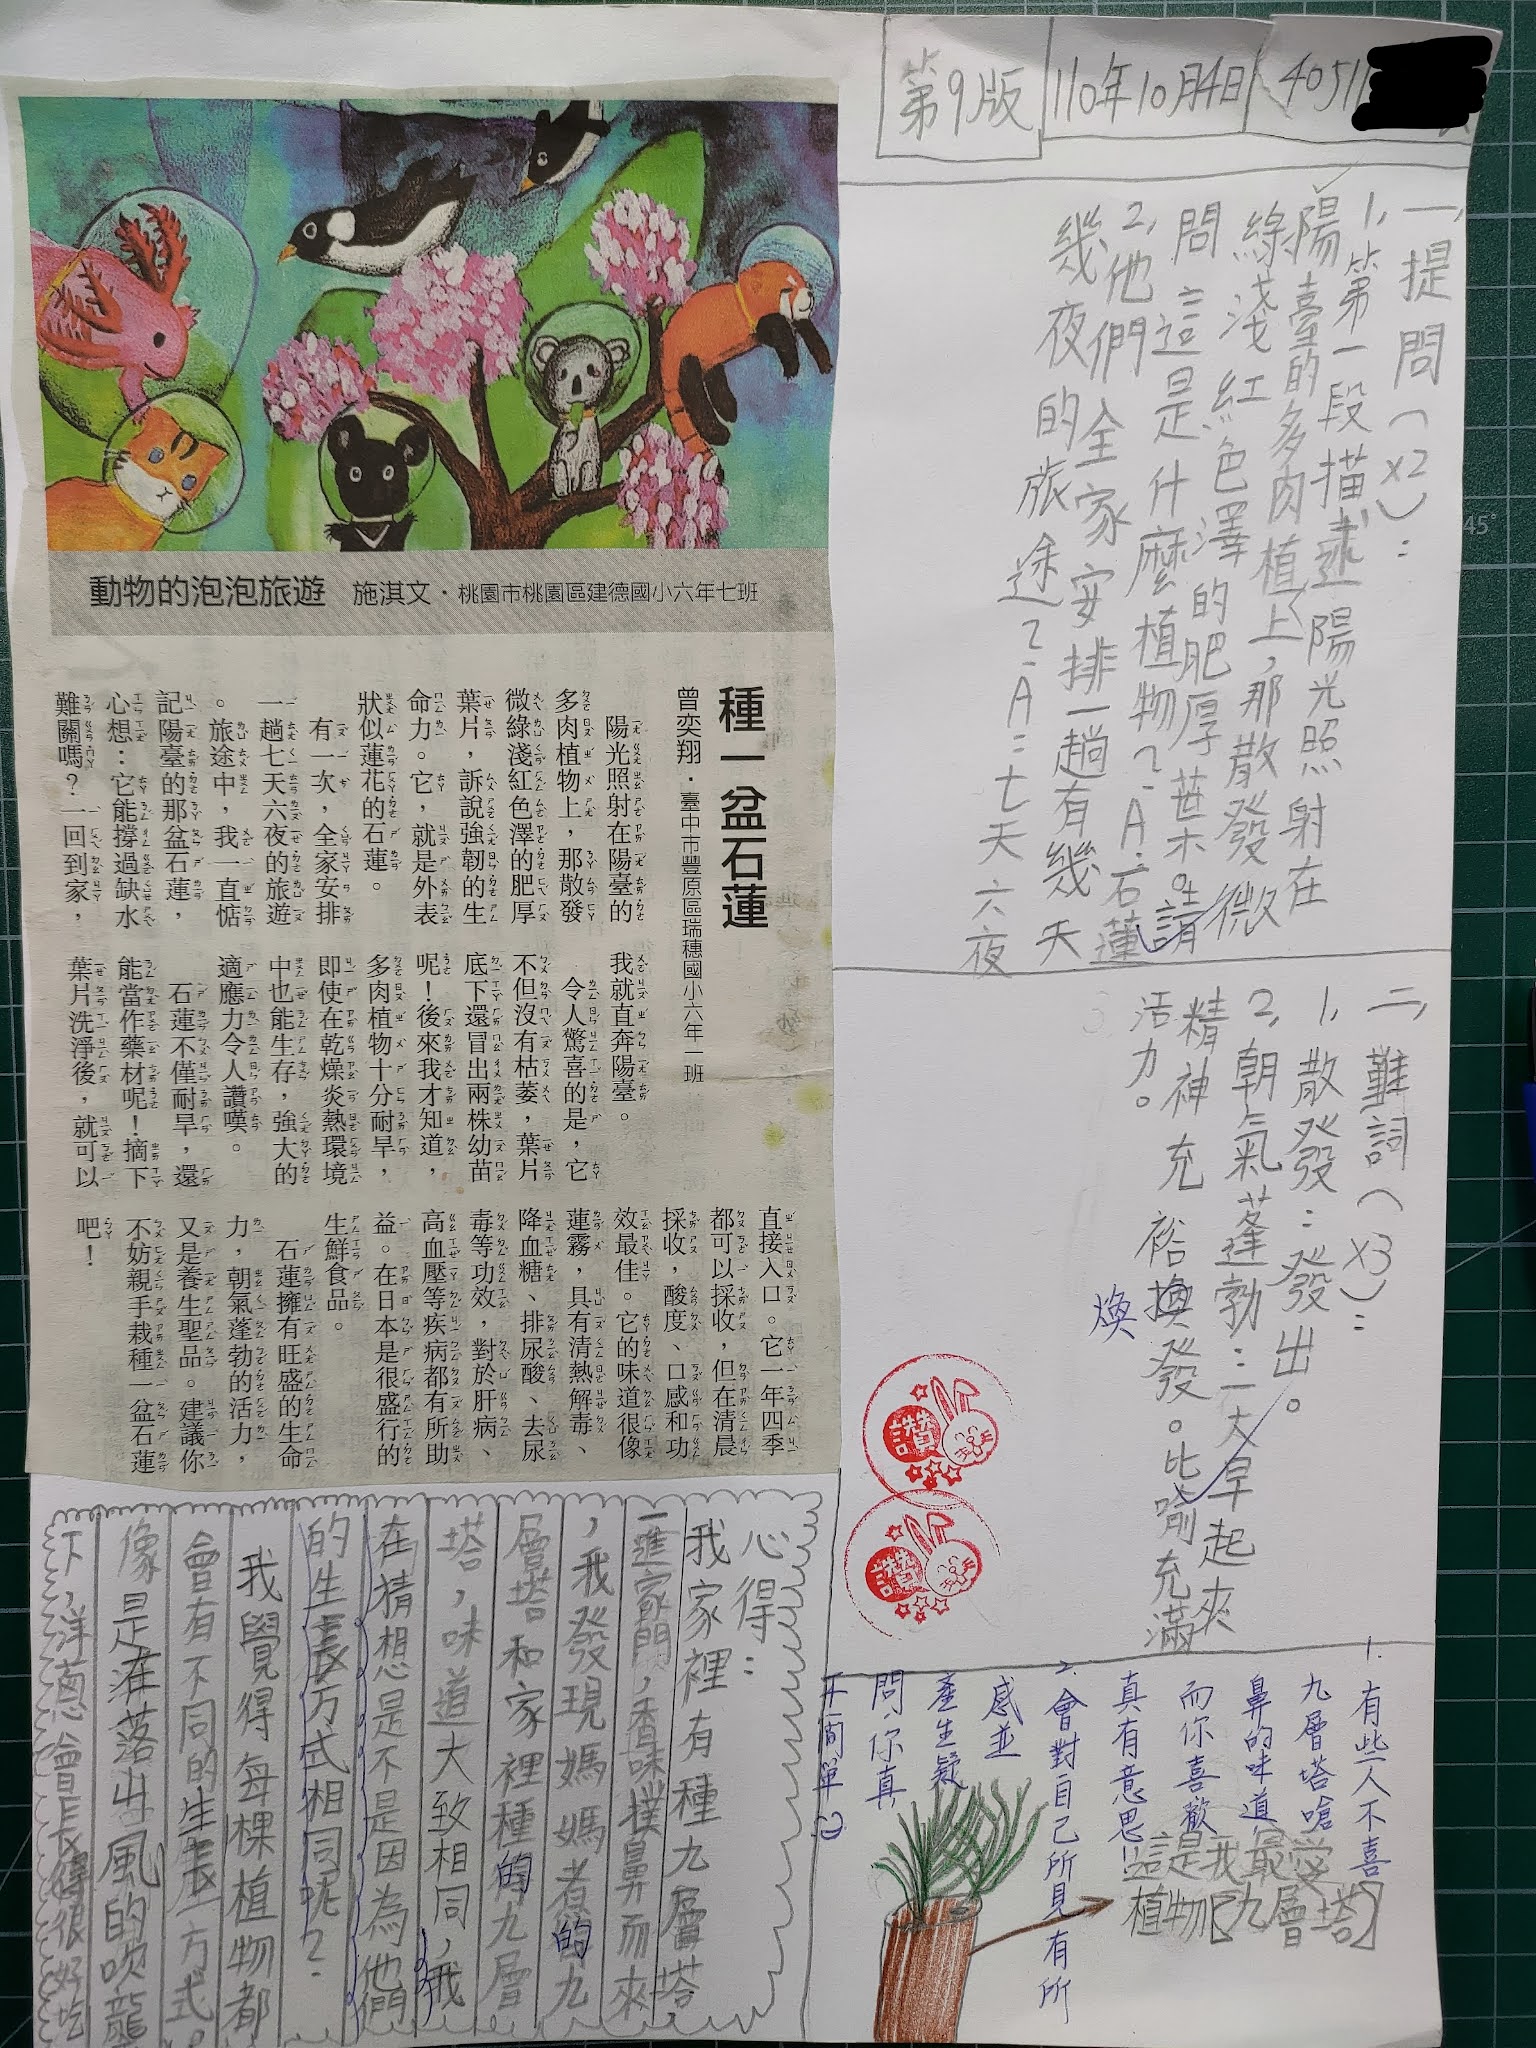 第9版
110年10月4日
40511
一、提問(×2)：
1,第一段描述陽光照射在
陽臺的多肉植上,那散發微
綠淺紅色澤的肥厚葉片。請
問這是什麼植物？A：石蓮
2,他們全家安排一趟有幾天
幾夜的旅途？A：七天六夜
二、難詞(×3)：
1,散發：發出。
2,朝氣蓬勃：一大早起來
精神充裕換發。比喻充滿
活力。
煥
讚
讚
動物的泡泡旅遊 施淇文・桃園市桃園區建德國小六年七班
種一盆石蓮
曾奕翔・臺中市豐原區瑞穗國小六年一班
陽光照射在陽臺的
多肉植物上，那散發
微綠淺紅色澤的肥厚
葉片，訴說強韌的生
命力。它，就是外表
狀似蓮花的石蓮。
有一次，全家安排
一趟七天六夜的旅遊
。旅途中，我一直惦
記陽臺的那盆石蓮，
心想：它能撐過缺水
難關嗎？一回到家，
我就直奔陽臺。
令人驚喜的是，它
不但沒有枯萎，葉片
底下還冒出兩株幼苗
呢！後來我才知道，
多肉植物十分耐旱，
即使在乾燥炎熱環境
中也能生存，強大的
適應力令人讚嘆。
石蓮不僅耐旱，還
能當作藥材呢！摘下
葉片洗淨後，就可以
直接入口。它一年四季
都可以採收，但在清晨
採收，酸度、口感和功
效最佳。它的味道很像
蓮霧，具有清熱解毒、
降血糖、排尿酸、去尿
毒等功效，對於肝病、
高血壓等疾病都有所助
益。在日本是很盛行的
生鮮食品。
石蓮擁有旺盛的生命
力，朝氣蓬勃的活力，
又是養生聖品。建議你
不妨親手栽種一盆石蓮
吧！
心得：
我家裡有種九層塔
一進家門,香味撲鼻而來
,我發現媽媽煮的九
層塔和家裡種的九層
塔,味道大致相同,我
在猜想是不是因為他們
的生長方式相同呢？
我覺得每棵植物都
會有不同的生長方式。
像是在落山風的吹襲
下,洋蔥會長得很好吃
1.有些人不喜
九層塔嗆
鼻的味道
而你喜歡
真有意思!
2.會對自己所見有所
感並
產生疑
問,你真
不簡單?
這是我最愛
植物【九層塔】